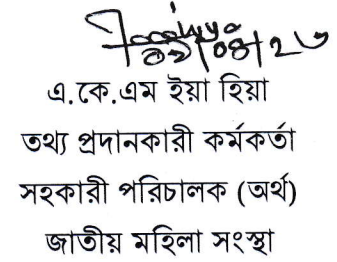 ০৯/০৪/২৩
এ.কে.এম ইয়া হিয়া
তথ্য প্রদানকারী কর্মকর্তা
সহকারী পরিচালক (অর্থ)
জাতীয় মহিলা সংস্থা